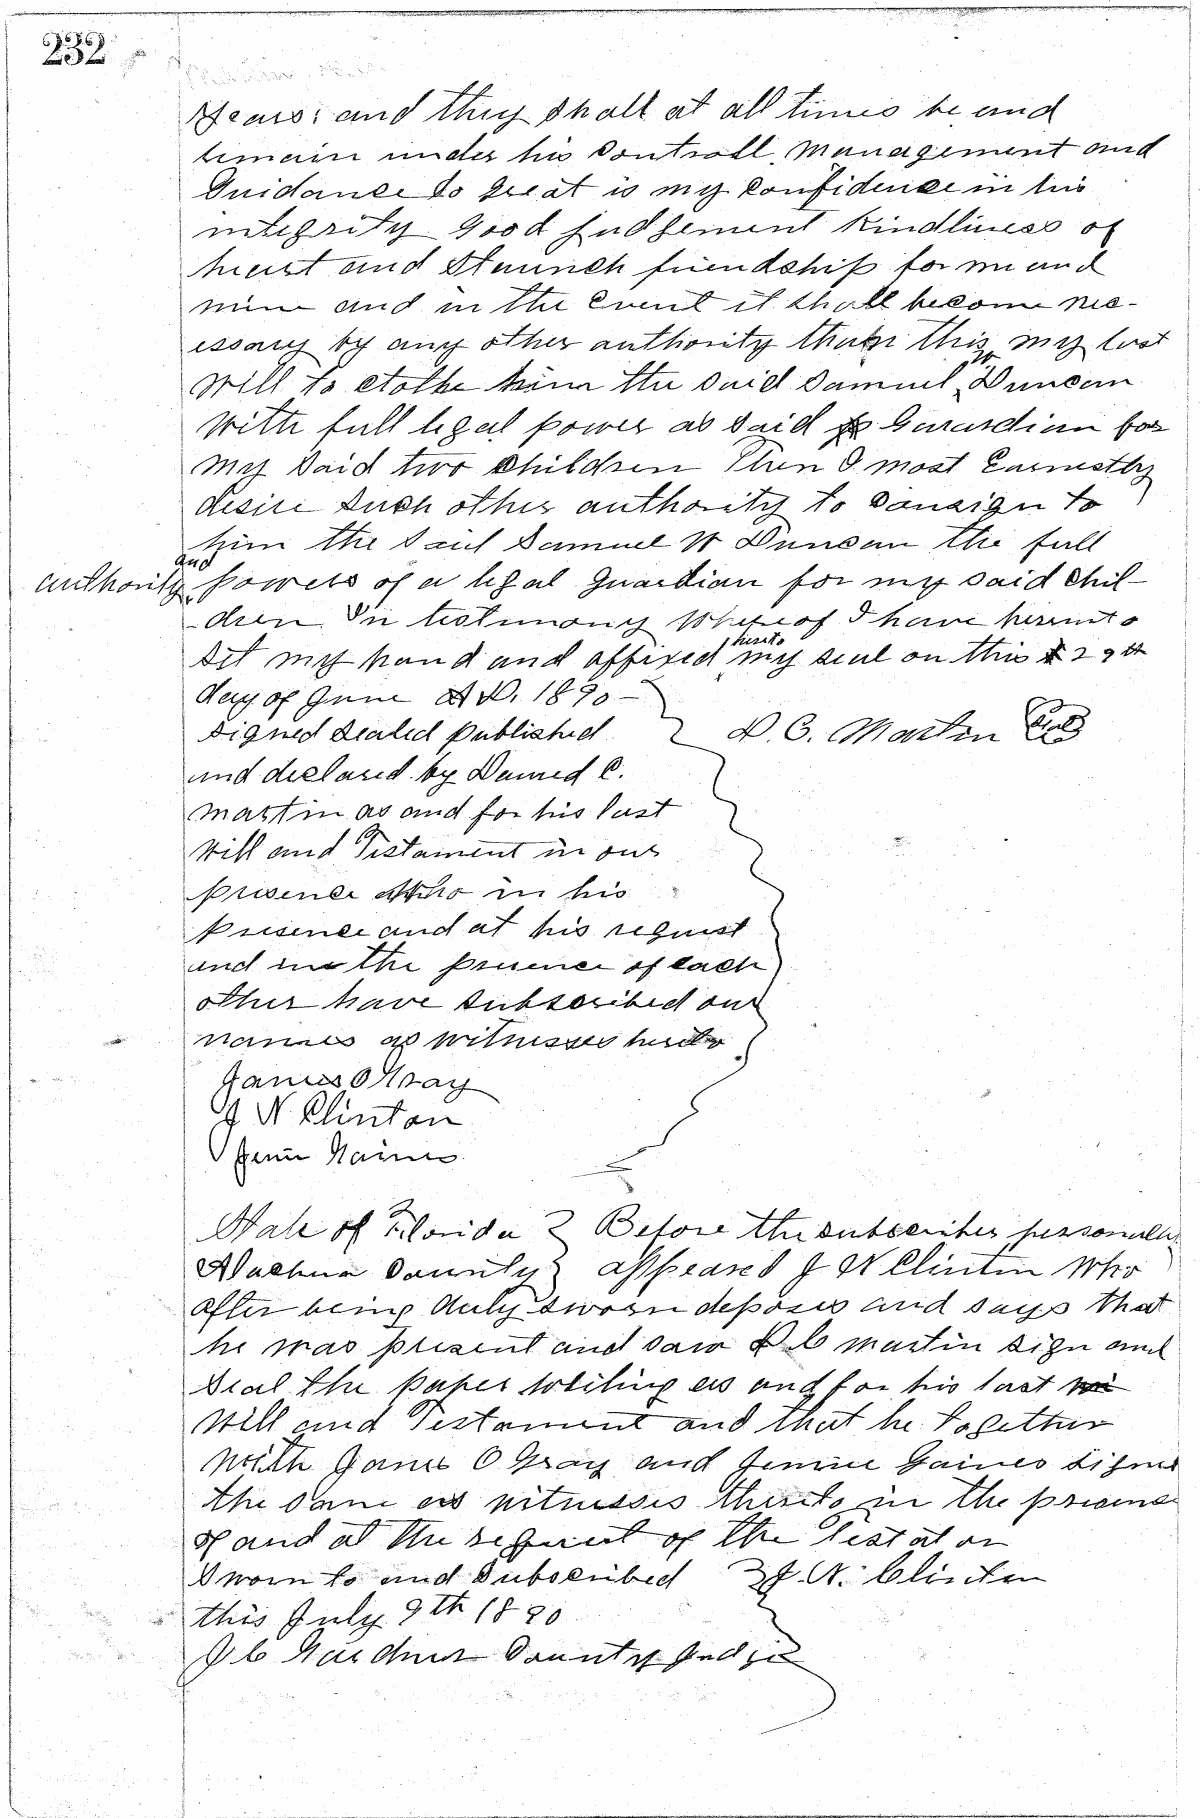 232
Years; and they shall at all times be and
remain under his controll, management and
Guidance so great is my confidence in his
integrity good judgement kindliness of
heart and staunch friendship for me and
mine and in the event it shall become nec-
essary by any other authority than this my last
will to clothe him the said Samuel W Duncan
with full legal power as said Guardian for
my said two children Then I most Earnestly
desire such other authority to consign to
him the said Samuel W Duncan the full
authority and powers of a legal guardian for my said chil-
-dren In testimony whereof I have hereunto
set my hand and affixed hereto my seal on this 29th
day of June A.D. 1890 -
signed sealed published D. C. Martin Seal
and declared by Damed C.
Martin as and for his last
will and Testament in our
presence who in his
presence and at his request
and in the presence of each
other have subscribed our
names as witnesses hereto
James O Gray
J N Clinton
Jennie Gaines
State of Florida } Before the subscriber personally
Alachua County } appeared J N Clinton who
after being duly sworn deposes and says that
he was present and saw D C Martin sign and
seal the paper writing as and for his last
will and Testament and that he together
with James O Gray and Jennie Gaines signed
the same as witnesses thereto in the presence
of and at the request of the Testator
Sworn to and subscribed } J. N. Clinton
this July 9th 1890
J C Gardner County Judge